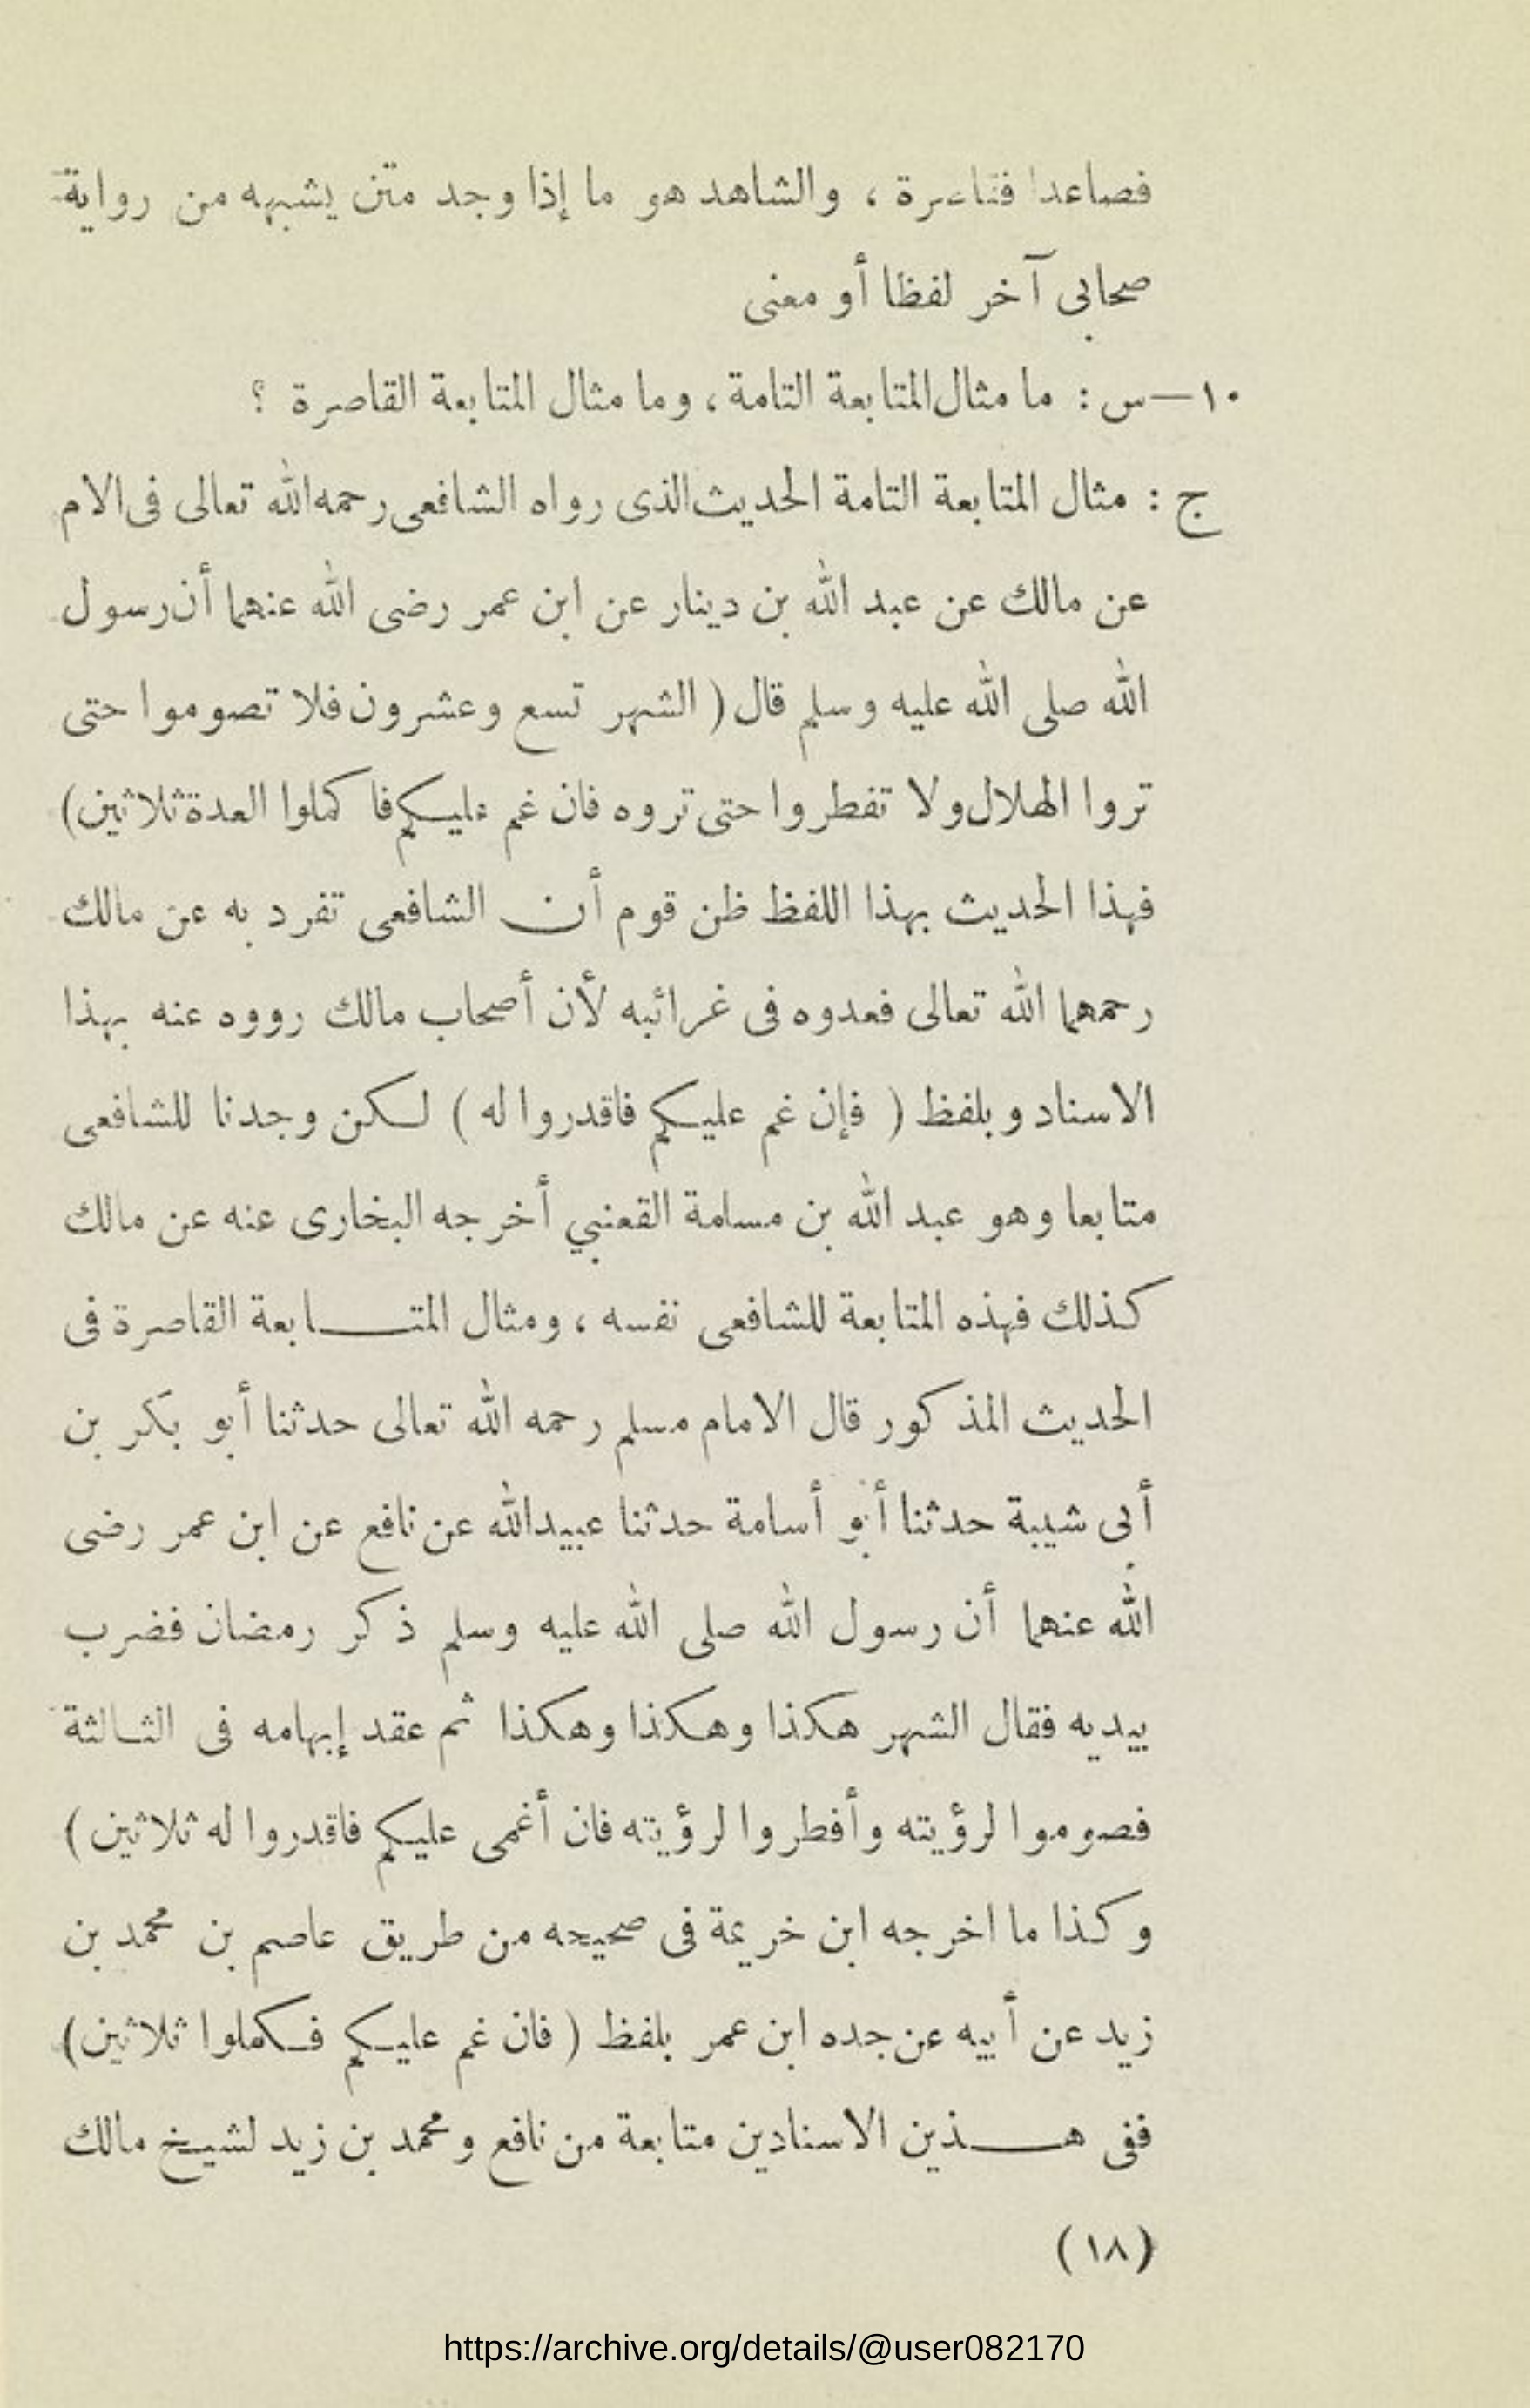 فصاعدا فقاصرة ، والشاهد هو ما إذا وجد متن يشبهه من رواية
صحابى آخر لفظا أو معنى
١٠—س : ما مثال المتابعة التامة ، وما مثال المتابعة القاصرة ؟
ج : مثال المتابعة التامة الحديث الذى رواه الشافعى رحمه الله تعالى فى الام
عن مالك عن عبد الله بن دينار عن ابن عمر رضى الله عنهما أن رسول
الله صلى الله عليه وسلم قال ( الشهر تسع وعشرون فلا تصوموا حتى
تروا الهلال ولا تفطروا حتى تروه فان غم عليكم فاكملوا العدة ثلاثين )
فهذا الحديث بهذا اللفظ ظن قوم أن الشافعى تفرد به عن مالك
رحمهما الله تعالى فعدوه فى غرائبه لأن أصحاب مالك رووه عنه بهذا
الاسناد وبلفظ ( فإن غم عليكم فاقدروا له ) لكن وجدنا للشافعى
متابعا وهو عبد الله بن مسامة القعنبي أخرجه البخارى عنه عن مالك
كذلك فهذه المتابعة للشافعى نفسه ، ومثال المتابعة القاصرة فى
الحديث المذكور قال الامام مسلم رحمه الله تعالى حدثنا أبو بكر بن
أبى شيبة حدثنا أبو أسامة حدثنا عبيدالله عن نافع عن ابن عمر رضى
الله عنهما أن رسول الله صلى الله عليه وسلم ذكر رمضان فضرب
بيديه فقال الشهر هكذا وهكذا وهكذا ثم عقد إبهامه فى الثالثة
فصوموا لرؤيته وأفطروا لرؤيته فان أغمى عليكم فاقدروا له ثلاثين )
وكذا ما اخرجه ابن خزيمة فى صحيحه من طريق عاصم بن محمد بن
زيد عن أبيه عن جده ابن عمر بلفظ ( فان غم عليكم فكملوا ثلاثين )
ففى هذين الاسنادين متابعة من نافع ومحمد بن زيد لشيخ مالك
( ١٨ )
https://archive.org/details/@user082170